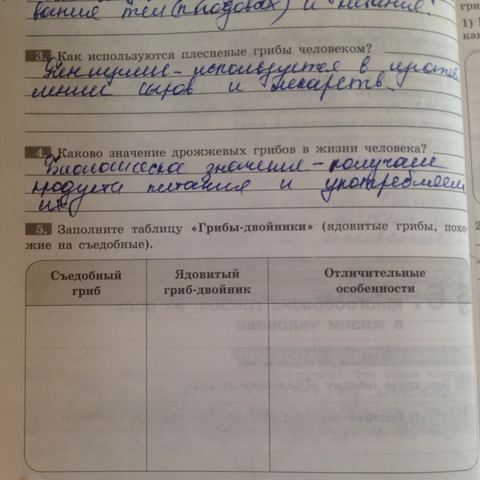 вание тел (плодовых) и питания.
3. Как используются плесневые грибы человеком?
используется в
сыров и лекарств.
4. Каково значение дрожжевых грибов в жизни человека?
значение - получаем
продукта питания и употребляем
их
5. Заполните таблицу «Грибы-двойники» (ядовитые грибы, похо-
жие на съедобные).
Съедобный гриб
Ядовитый гриб-двойник
Отличительные особенности
гри
1)
ка